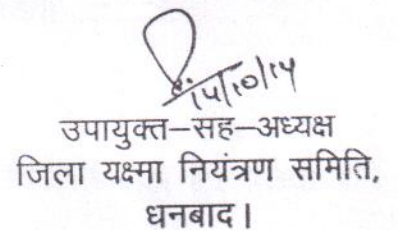 14/10/14
उपायुक्त–सह–अध्यक्ष
जिला यक्ष्मा नियंत्रण समिति,
धनबाद।